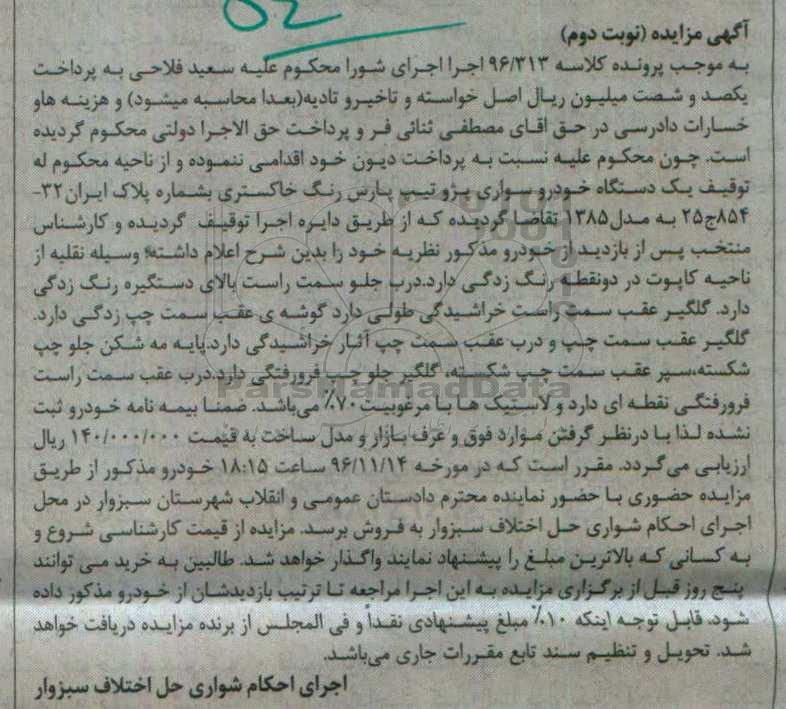 آگهی مزایده (نوبت دوم)
به موجب پرونده کلاسه ۹۶/۳۱۳ اجرا اجرای شورا محکوم علیه سعید فلاحی به پرداخت
یکصد و شصت میلیون ریال اصل خواسته و تاخیرو تادیه(بعدا محاسبه میشود) و هزینه هاو
خسارات دادرسی در حق اقای مصطفی ثنائی فر و پرداخت حق الاجرا دولتی محکوم گردیده
است. چون محکوم علیه نسبت به پرداخت دیون خود اقدامی ننموده و از ناحیه محکوم له
توقیف یک دستگاه خودرو سواری پژو تیپ پارس رنگ خاکستری بشماره پلاک ایران۳۲-
۸۵۴ج۲۵ به مدل۱۳۸۵ تقاضا گردیده که از طریق دایره اجرا توقیف گردیده و کارشناس
منتخب پس از بازدید از خودرو مذکور نظریه خود را بدین شرح اعلام داشته؛ وسیله نقلیه از
ناحیه کاپوت در دونقطه رنگ زدگی دارد.درب جلو سمت راست بالای دستگیره رنگ زدگی
دارد. گلگیر عقب سمت راست خراشیدگی طولی دارد گوشه ی عقب سمت چپ زدگی دارد.
گلگیر عقب سمت چپ و درب عقب سمت چپ آثار خراشیدگی دارد.پایه مه شکن جلو چپ
شکسته،سپر عقب سمت چپ شکسته، گلگیر جلو چپ فرورفتگی دارد.درب عقب سمت راست
فرورفتگی نقطه ای دارد و لاستیک ها با مرغوبیت ۷۰٪ می‌باشد. ضمنا بیمه نامه خودرو ثبت
نشده لذا با درنظر گرفتن موارد فوق و عرف بازار و مدل ساخت به قیمت ۱۴۰/۰۰۰/۰۰۰ ریال
ارزیابی می‌گردد. مقرر است که در مورخه ۹۶/۱۱/۱۴ ساعت ۱۸:۱۵ خودرو مذکور از طریق
مزایده حضوری با حضور نماینده محترم دادستان عمومی و انقلاب شهرستان سبزوار در محل
اجرای احکام شواری حل اختلاف سبزوار به فروش برسد. مزایده از قیمت کارشناسی شروع و
به کسانی که بالاترین مبلغ را پیشنهاد نمایند واگذار خواهد شد. طالبین به خرید می توانند
پنج روز قبل از برگزاری مزایده به این اجرا مراجعه تا ترتیب بازدیدشان از خودرو مذکور داده
شود. قابل توجه اینکه ۱۰٪ مبلغ پیشنهادی نقداً و فی المجلس از برنده مزایده دریافت خواهد
شد. تحویل و تنظیم سند تابع مقررات جاری می‌باشد.
اجرای احکام شواری حل اختلاف سبزوار
ParsNamadData